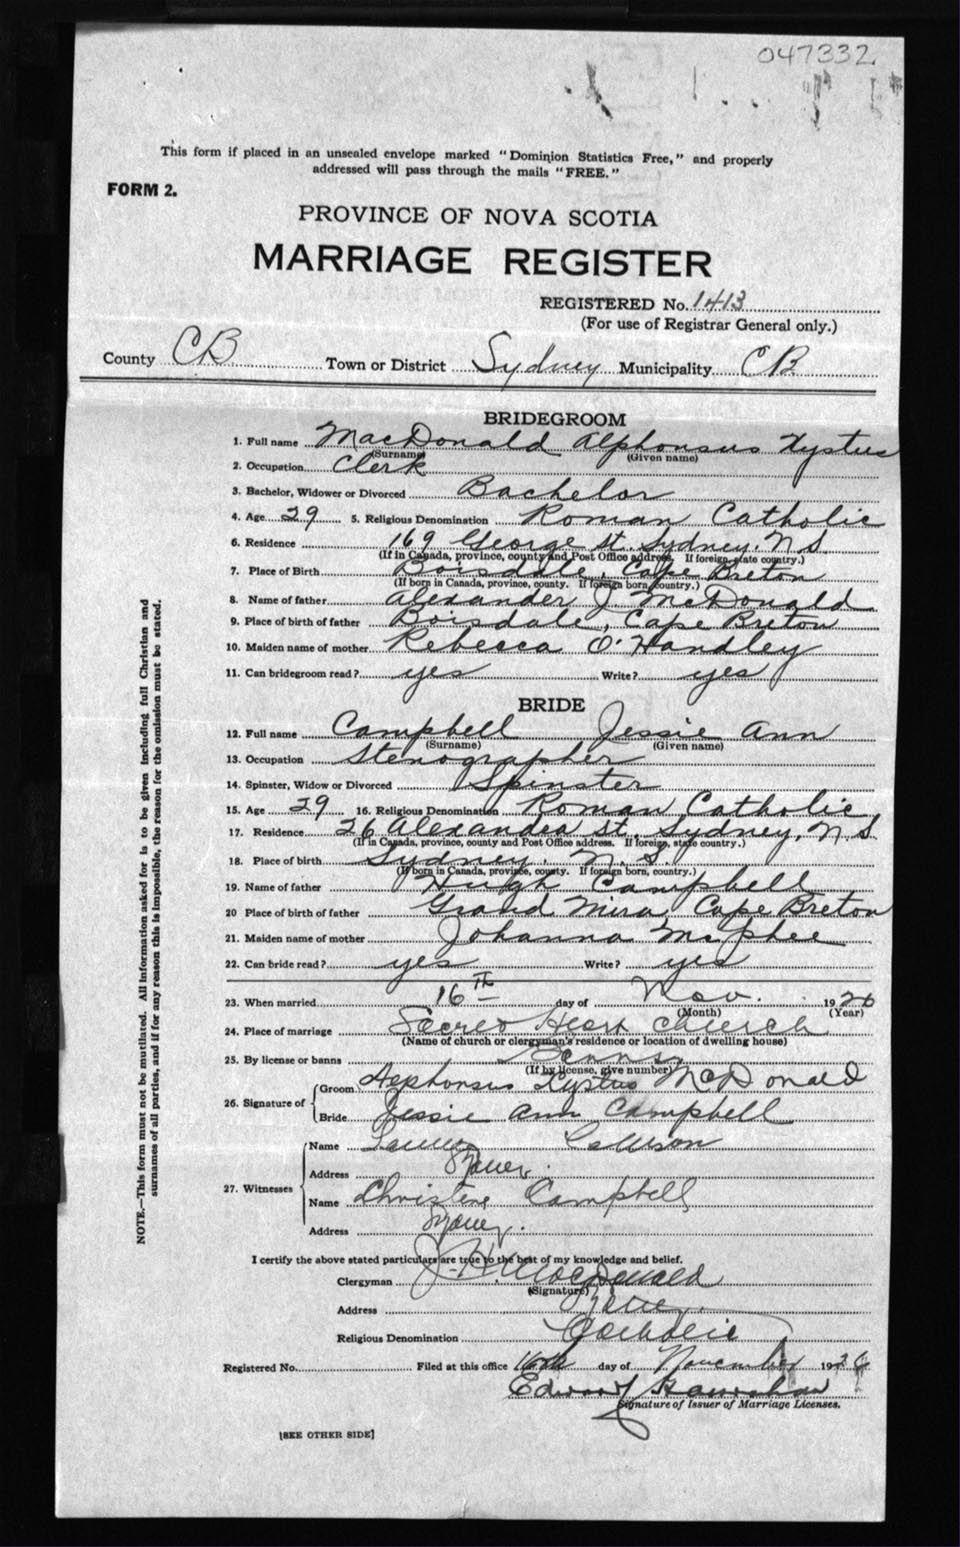 047332
This form if placed in an unsealed envelope marked "Dominion Statistics Free," and properly
addressed will pass through the mails "FREE."
FORM 2.
PROVINCE OF NOVA SCOTIA
MARRIAGE REGISTER
REGISTERED No. 1413
(For use of Registrar General only.)
County CB Town or District Sydney Municipality CB
BRIDEGROOM
1. Full name MacDonald Alphonsus Xystus
(Surname) (Given name)
2. Occupation Clerk
3. Bachelor, Widower or Divorced Bachelor
4. Age 29 5. Religious Denomination Roman Catholic
6. Residence 169 George St. Sydney. N.S
(If in Canada, province, county and Post Office address. If foreign, state country.)
7. Place of Birth Boisdale, Cape Breton
(If born in Canada, province, county. If foreign born, country.)
8. Name of father Alexander J. McDonald
9. Place of birth of father Boisdale, Cape Breton
10. Maiden name of mother Rebecca O'Handley
11. Can bridegroom read? yes Write? yes
BRIDE
12. Full name Campbell Jessie Ann
(Surname) (Given name)
13. Occupation Stenographer
14. Spinster, Widow or Divorced Spinster
15. Age 29 16. Religious Denomination Roman Catholic
17. Residence 26 Alexandra St. Sydney, N.S.
(If in Canada, province, county and Post Office address. If foreign, state country.)
18. Place of birth Sydney. N.S.
(If born in Canada, province, county. If foreign born, country.)
19. Name of father Hugh Campbell
20 Place of birth of father Grand Mira, Cape Breton
21. Maiden name of mother Johanna McPhee
22. Can bride read? yes Write? yes
23. When married 16th day of Nov. 19
(Month) (Year)
24. Place of marriage Sacred Heart Church
(Name of church or clergyman's residence or location of dwelling house)
25. By license or banns Banns
(If by license, give number)
26. Signature of Groom Alphonsus Xystus McDonald
Bride Jessie Ann Campbell
27. Witnesses
Name
Address Sydney.
Name Christene Campbell
Address Sydney.
I certify the above stated particulars are true to the best of my knowledge and belief.
Clergyman J. H. MacDonald
(Signature)
Address Sydney.
Religious Denomination Catholic
Registered No. Filed at this office 16th day of November 19
Edward
Signature of Issuer of Marriage Licenses.
[SEE OTHER SIDE]
NOTE.—This form must not be mutilated. All information asked for is to be given including full Christian and
surnames of all parties, and if for any reason this is impossible, the reason for the omission must be stated.